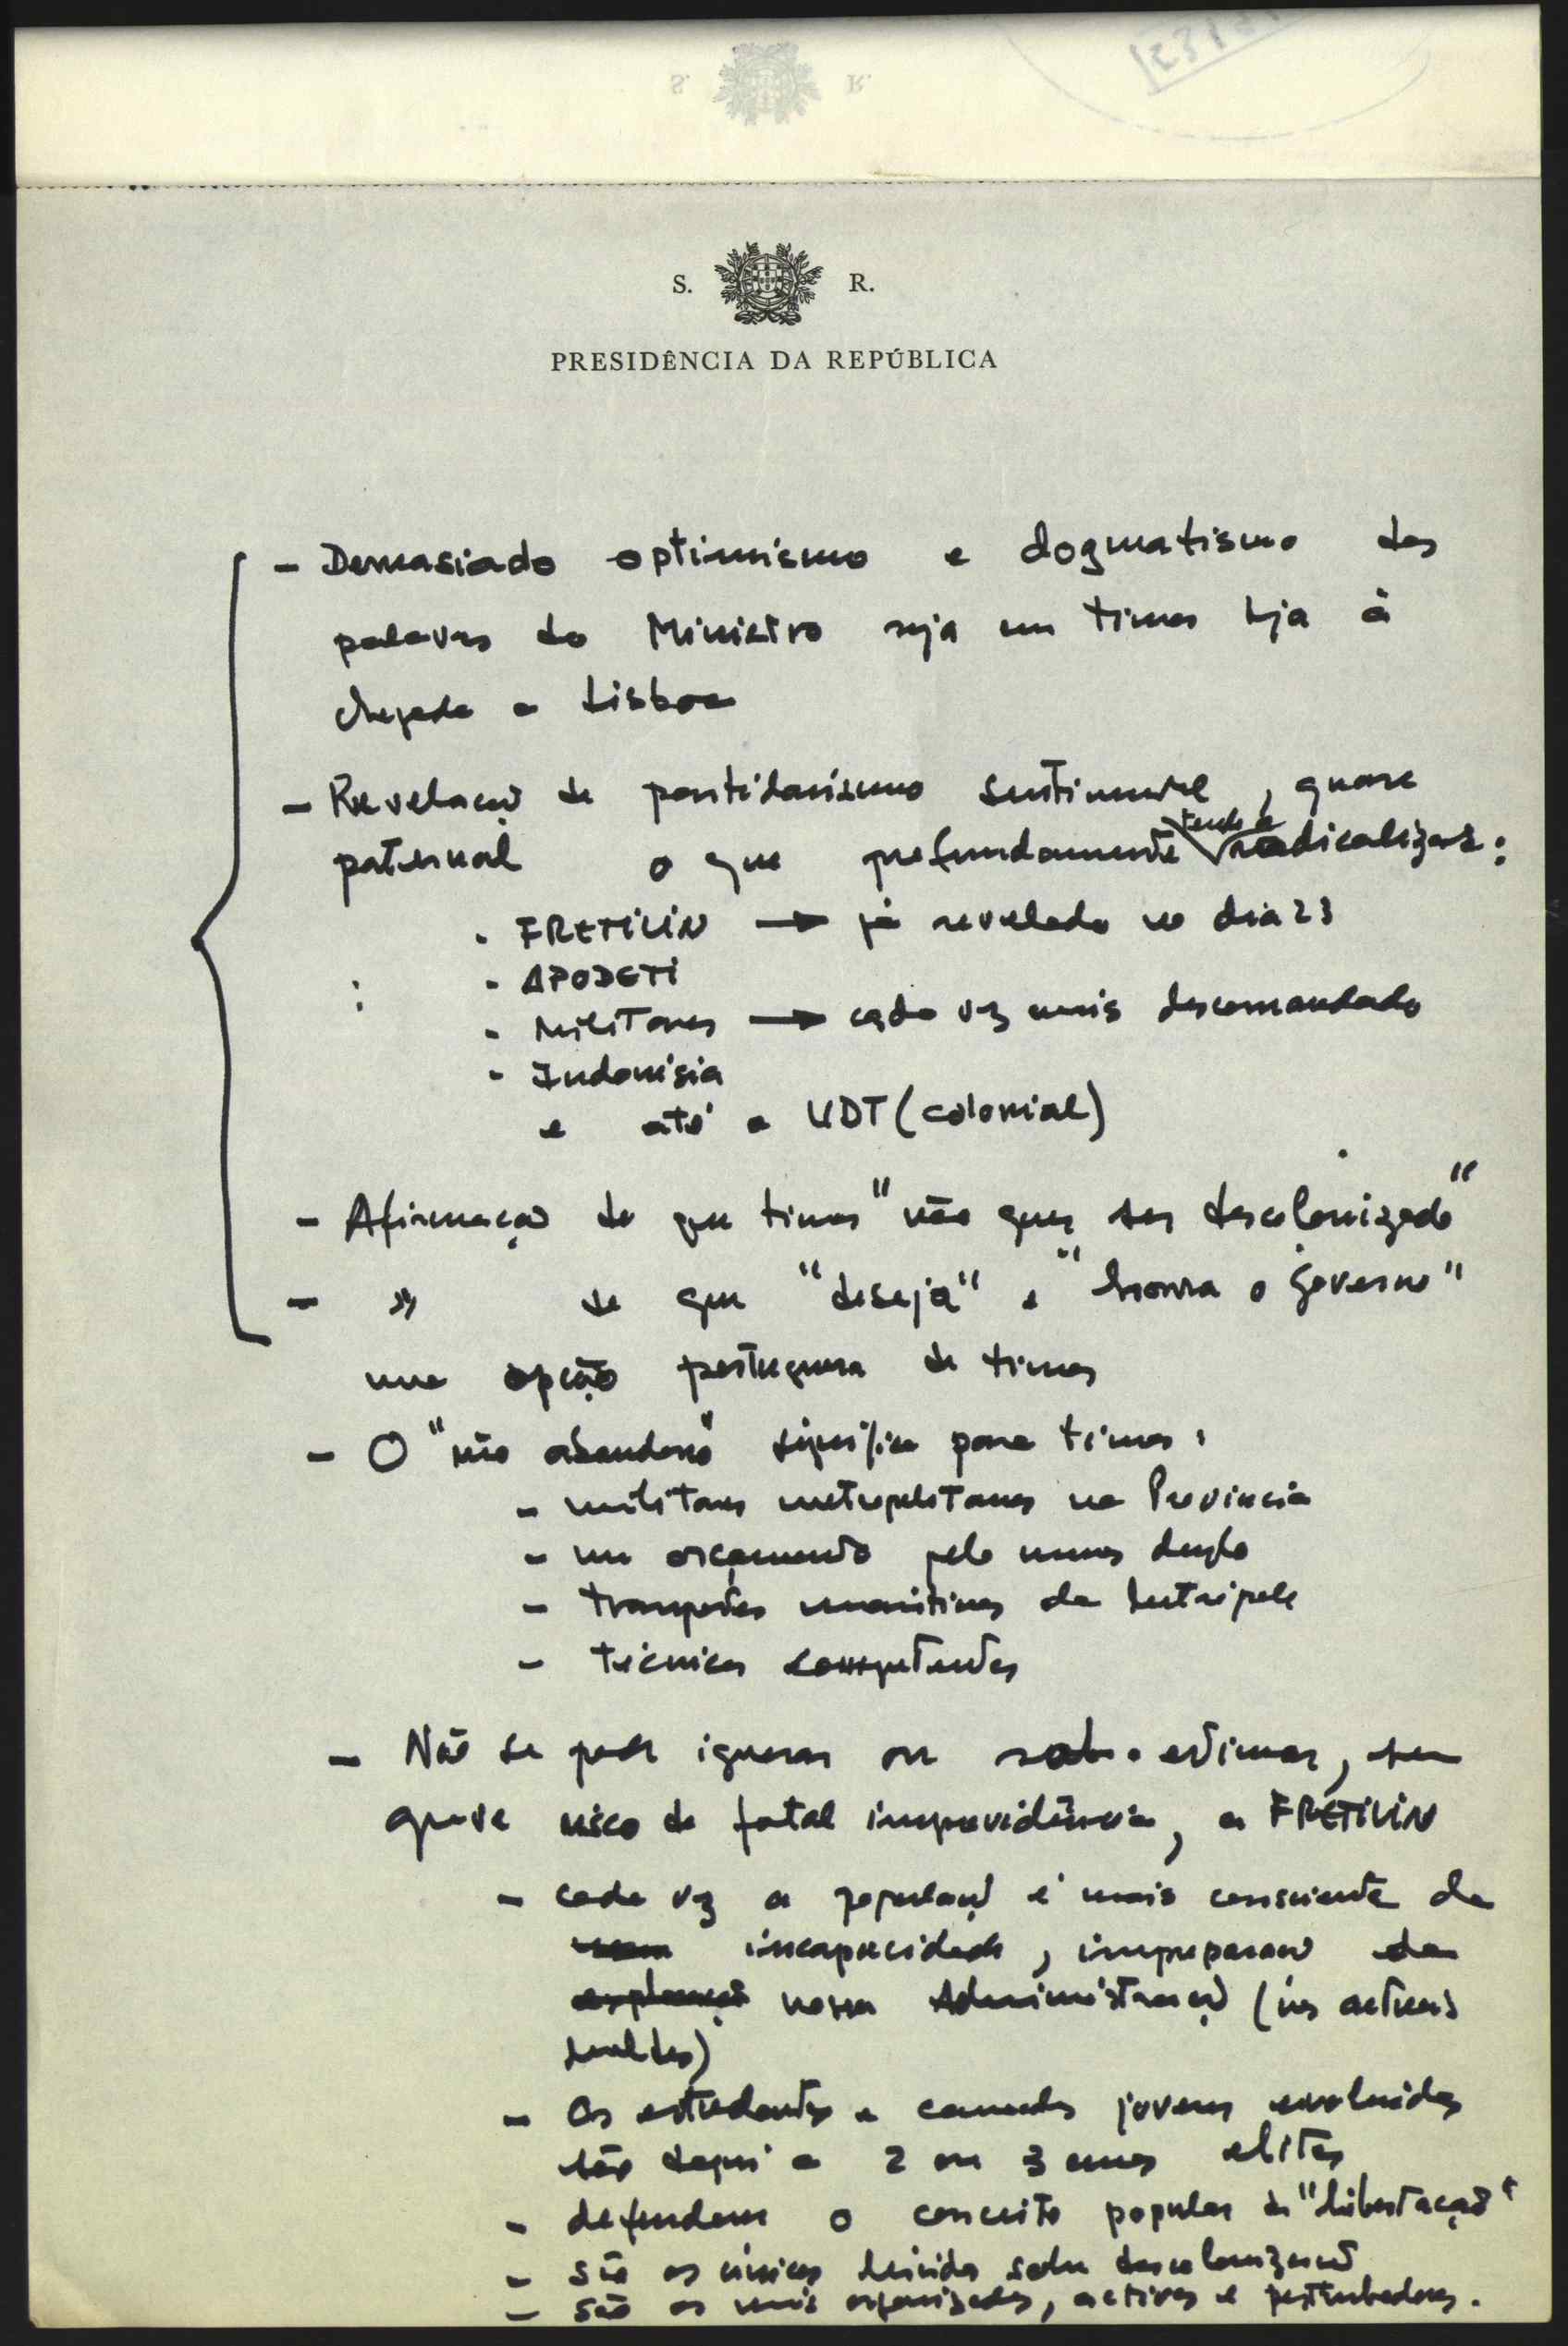 S. R.
PRESIDÊNCIA DA REPÚBLICA
- Demasiado optimismo e dogmatismo das
palavras do Ministro seja em Timor seja à
chegada a Lisboa
- Revelação de partidarismo sentimental, quase
paternal o que profundamente tende a radicalizar:
- FRETILIN → já revelado no dia 23
- APODETI
- Militares → cada vez mais descomandado
- Indonésia
e até a UDT (colonial)
- Afirmação de que Timor "não quer ser descolonizado"
- " de que "deseja" e "honra o Governo"
uma opção portuguesa de Timor
- O "não abandono" significa para Timor:
- militares metropolitanos na Provincia
- um orçamento pelo menos duplo
- transportes maritimos da Metrópole
- técnicos competentes
- Não se pode ignorar ou sub-estimar, sem
grave risco de fatal imprevidência, a FRETILIN
- cada vez a população é mais consciente da
incapacidade, impreparação da
nossa Administração (nos actuais
moldes)
- Os estudantes e camadas jovens evoluidas
são daqui a 2 ou 3 anos elites
- defendem o conceito popular de "libertação"
- são os únicos lúcidos sobre descolonização
- são os mais organizados, activos e perturbadores.